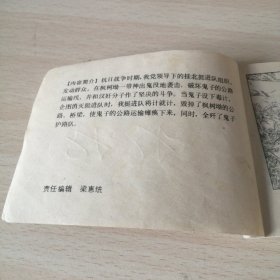 【内容简介】抗日战争时期,我党领导下的挂北挺进队组织、
发动群众,在枫树坳一带神出鬼没地袭击、破坏鬼子的公路
运输线,并和汉奸分子作了坚决的斗争。当鬼子设下毒计,
企图消灭挺进队时,我挺进队将计就计,毁掉了枫树坳的公
路、桥梁,使鬼子的公路运输瘫痪下来,同时,全歼了鬼子
护路队。
责任编辑 梁惠统